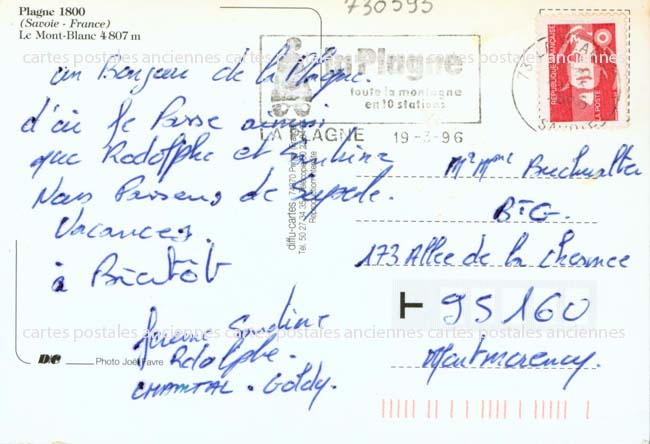 Plagne 1800
(Savoie - France)
Le Mont-Blanc 4 807 m
730595
la Plagne
toute la montagne
en 10 stations
LA PLAGNE 19-3-96
REPUBLIQUE FRANÇAISE
LA POSTE
un Bonjour de la Plagne.
d'où je Passe ainsi
que Rodolphe et
Nous Passons de Superbe.
Vacances.
à Bientôt
Sandrine
Rdolphe.
CHANTAL. Goldy.
Mr Mme Buchwalter
BtG.
173 Allee de la Chesnee
95160
Montmorency.
diffu-cartes
DC
Photo Joël Favre
cartes postales anciennes cartes postales anciennes cartes postales anciennes
cartes postales anciennes cartes postales anciennes cartes postales anciennes